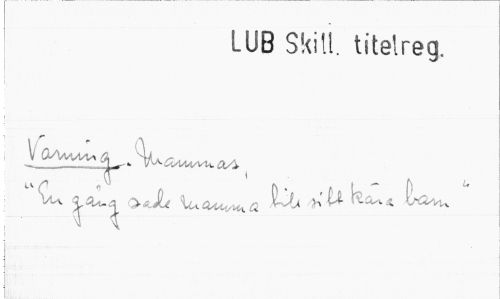 LUB Skill. titelreg.
Varning. Mammas,
"En gång sade mamma till sitt kära barn"